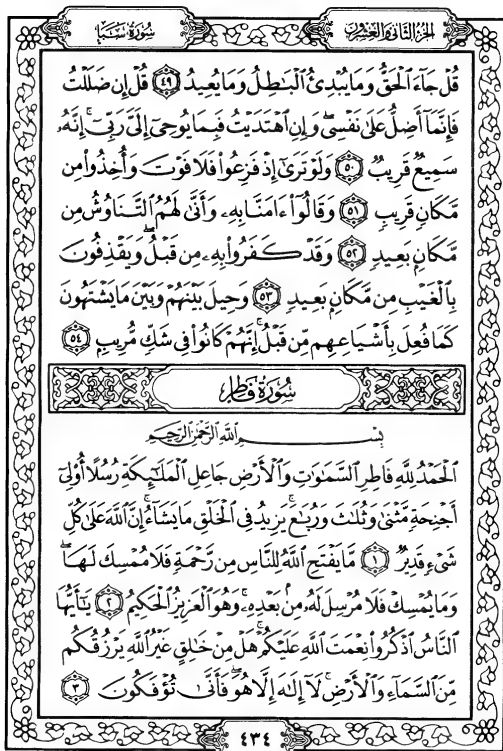 الجزء الثاني والعشرون
سورة سبإ
قُلْ جَآءَ ٱلْحَقُّ وَمَا يُبْدِئُ ٱلْبَٰطِلُ وَمَا يُعِيدُ ٤٩ قُلْ إِن ضَلَلْتُ
فَإِنَّمَآ أَضِلُّ عَلَىٰ نَفْسِي ۖ وَإِنِ ٱهْتَدَيْتُ فَبِمَا يُوحِىٓ إِلَىَّ رَبِّىٓ ۚ إِنَّهُۥ
سَمِيعٌ قَرِيبٌ ٥٠ وَلَوْ تَرَىٰٓ إِذْ فَزِعُوا۟ فَلَا فَوْتَ وَأُخِذُوا۟ مِن
مَّكَانٍ قَرِيبٍ ٥١ وَقَالُوٓا۟ ءَامَنَّا بِهِۦ وَأَنَّىٰ لَهُمُ ٱلتَّنَاوُشُ مِن
مَّكَانٍۭ بَعِيدٍ ٥٢ وَقَدْ كَفَرُوا۟ بِهِۦ مِن قَبْلُ ۖ وَيَقْذِفُونَ
بِٱلْغَيْبِ مِن مَّكَانٍۭ بَعِيدٍ ٥٣ وَحِيلَ بَيْنَهُمْ وَبَيْنَ مَا يَشْتَهُونَ
كَمَا فُعِلَ بِأَشْيَاعِهِم مِّن قَبْلُ ۚ إِنَّهُمْ كَانُوا۟ فِى شَكٍّ مُّرِيبٍۭ ٥٤
سُورَةُ فَاطِرٍ
بِسْمِ ٱللَّهِ ٱلرَّحْمَٰنِ ٱلرَّحِيمِ
ٱلْحَمْدُ لِلَّهِ فَاطِرِ ٱلسَّمَٰوَٰتِ وَٱلْأَرْضِ جَاعِلِ ٱلْمَلَٰٓئِكَةِ رُسُلًا أُو۟لِىٓ
أَجْنِحَةٍ مَّثْنَىٰ وَثُلَٰثَ وَرُبَٰعَ ۚ يَزِيدُ فِى ٱلْخَلْقِ مَا يَشَآءُ ۚ إِنَّ ٱللَّهَ عَلَىٰ كُلِّ
شَىْءٍ قَدِيرٌ ١ مَّا يَفْتَحِ ٱللَّهُ لِلنَّاسِ مِن رَّحْمَةٍ فَلَا مُمْسِكَ لَهَا ۖ
وَمَا يُمْسِكْ فَلَا مُرْسِلَ لَهُۥ مِنۢ بَعْدِهِۦ ۚ وَهُوَ ٱلْعَزِيزُ ٱلْحَكِيمُ ٢ يَٰٓأَيُّهَا
ٱلنَّاسُ ٱذْكُرُوا۟ نِعْمَتَ ٱللَّهِ عَلَيْكُمْ ۚ هَلْ مِنْ خَٰلِقٍ غَيْرُ ٱللَّهِ يَرْزُقُكُم
مِّنَ ٱلسَّمَآءِ وَٱلْأَرْضِ ۚ لَآ إِلَٰهَ إِلَّا هُوَ ۖ فَأَنَّىٰ تُؤْفَكُونَ ٣
٤٣٤